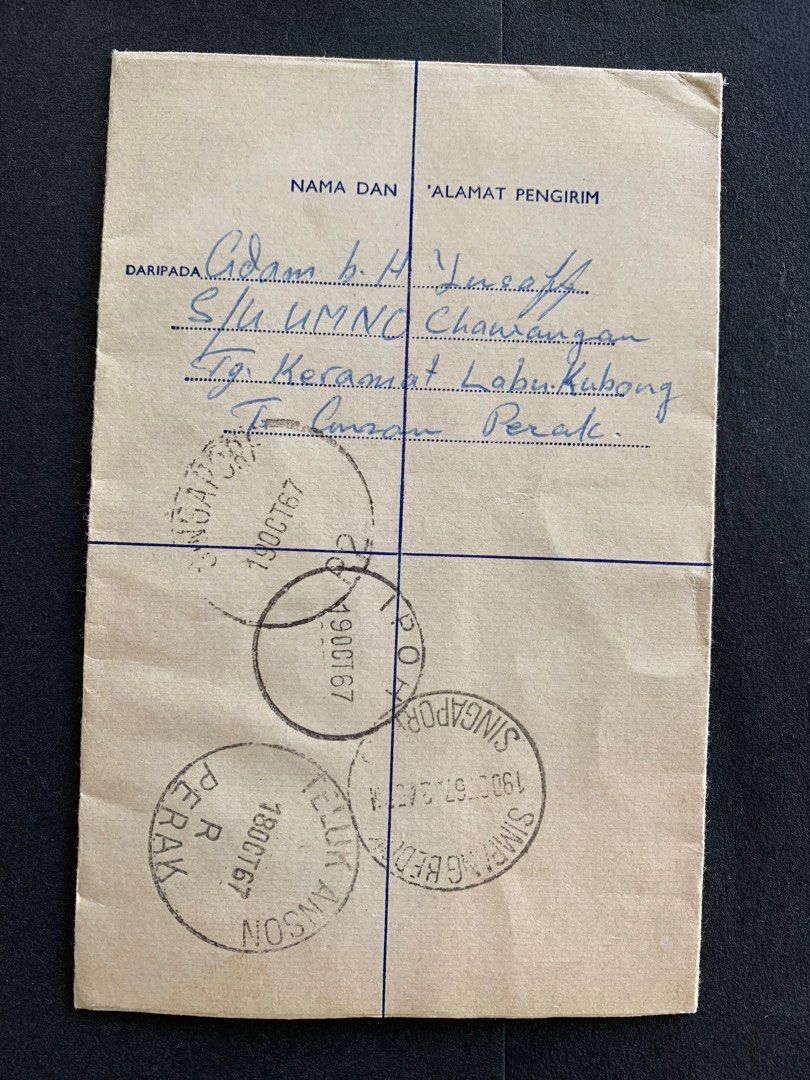 NAMA DAN 'ALAMAT PENGIRIM
DARIPADA Adam b. H Yusoff
S/U UMNO Chawangan
Tg. Keramat Labu Kubong
T. Anson Perak.
SINGAPORE
19OCT67
IPOH
19OCT67
SINGAPORE
19OCT67
SIMPANG BEDOK
TELUK ANSON
18OCT67
R
PERAK